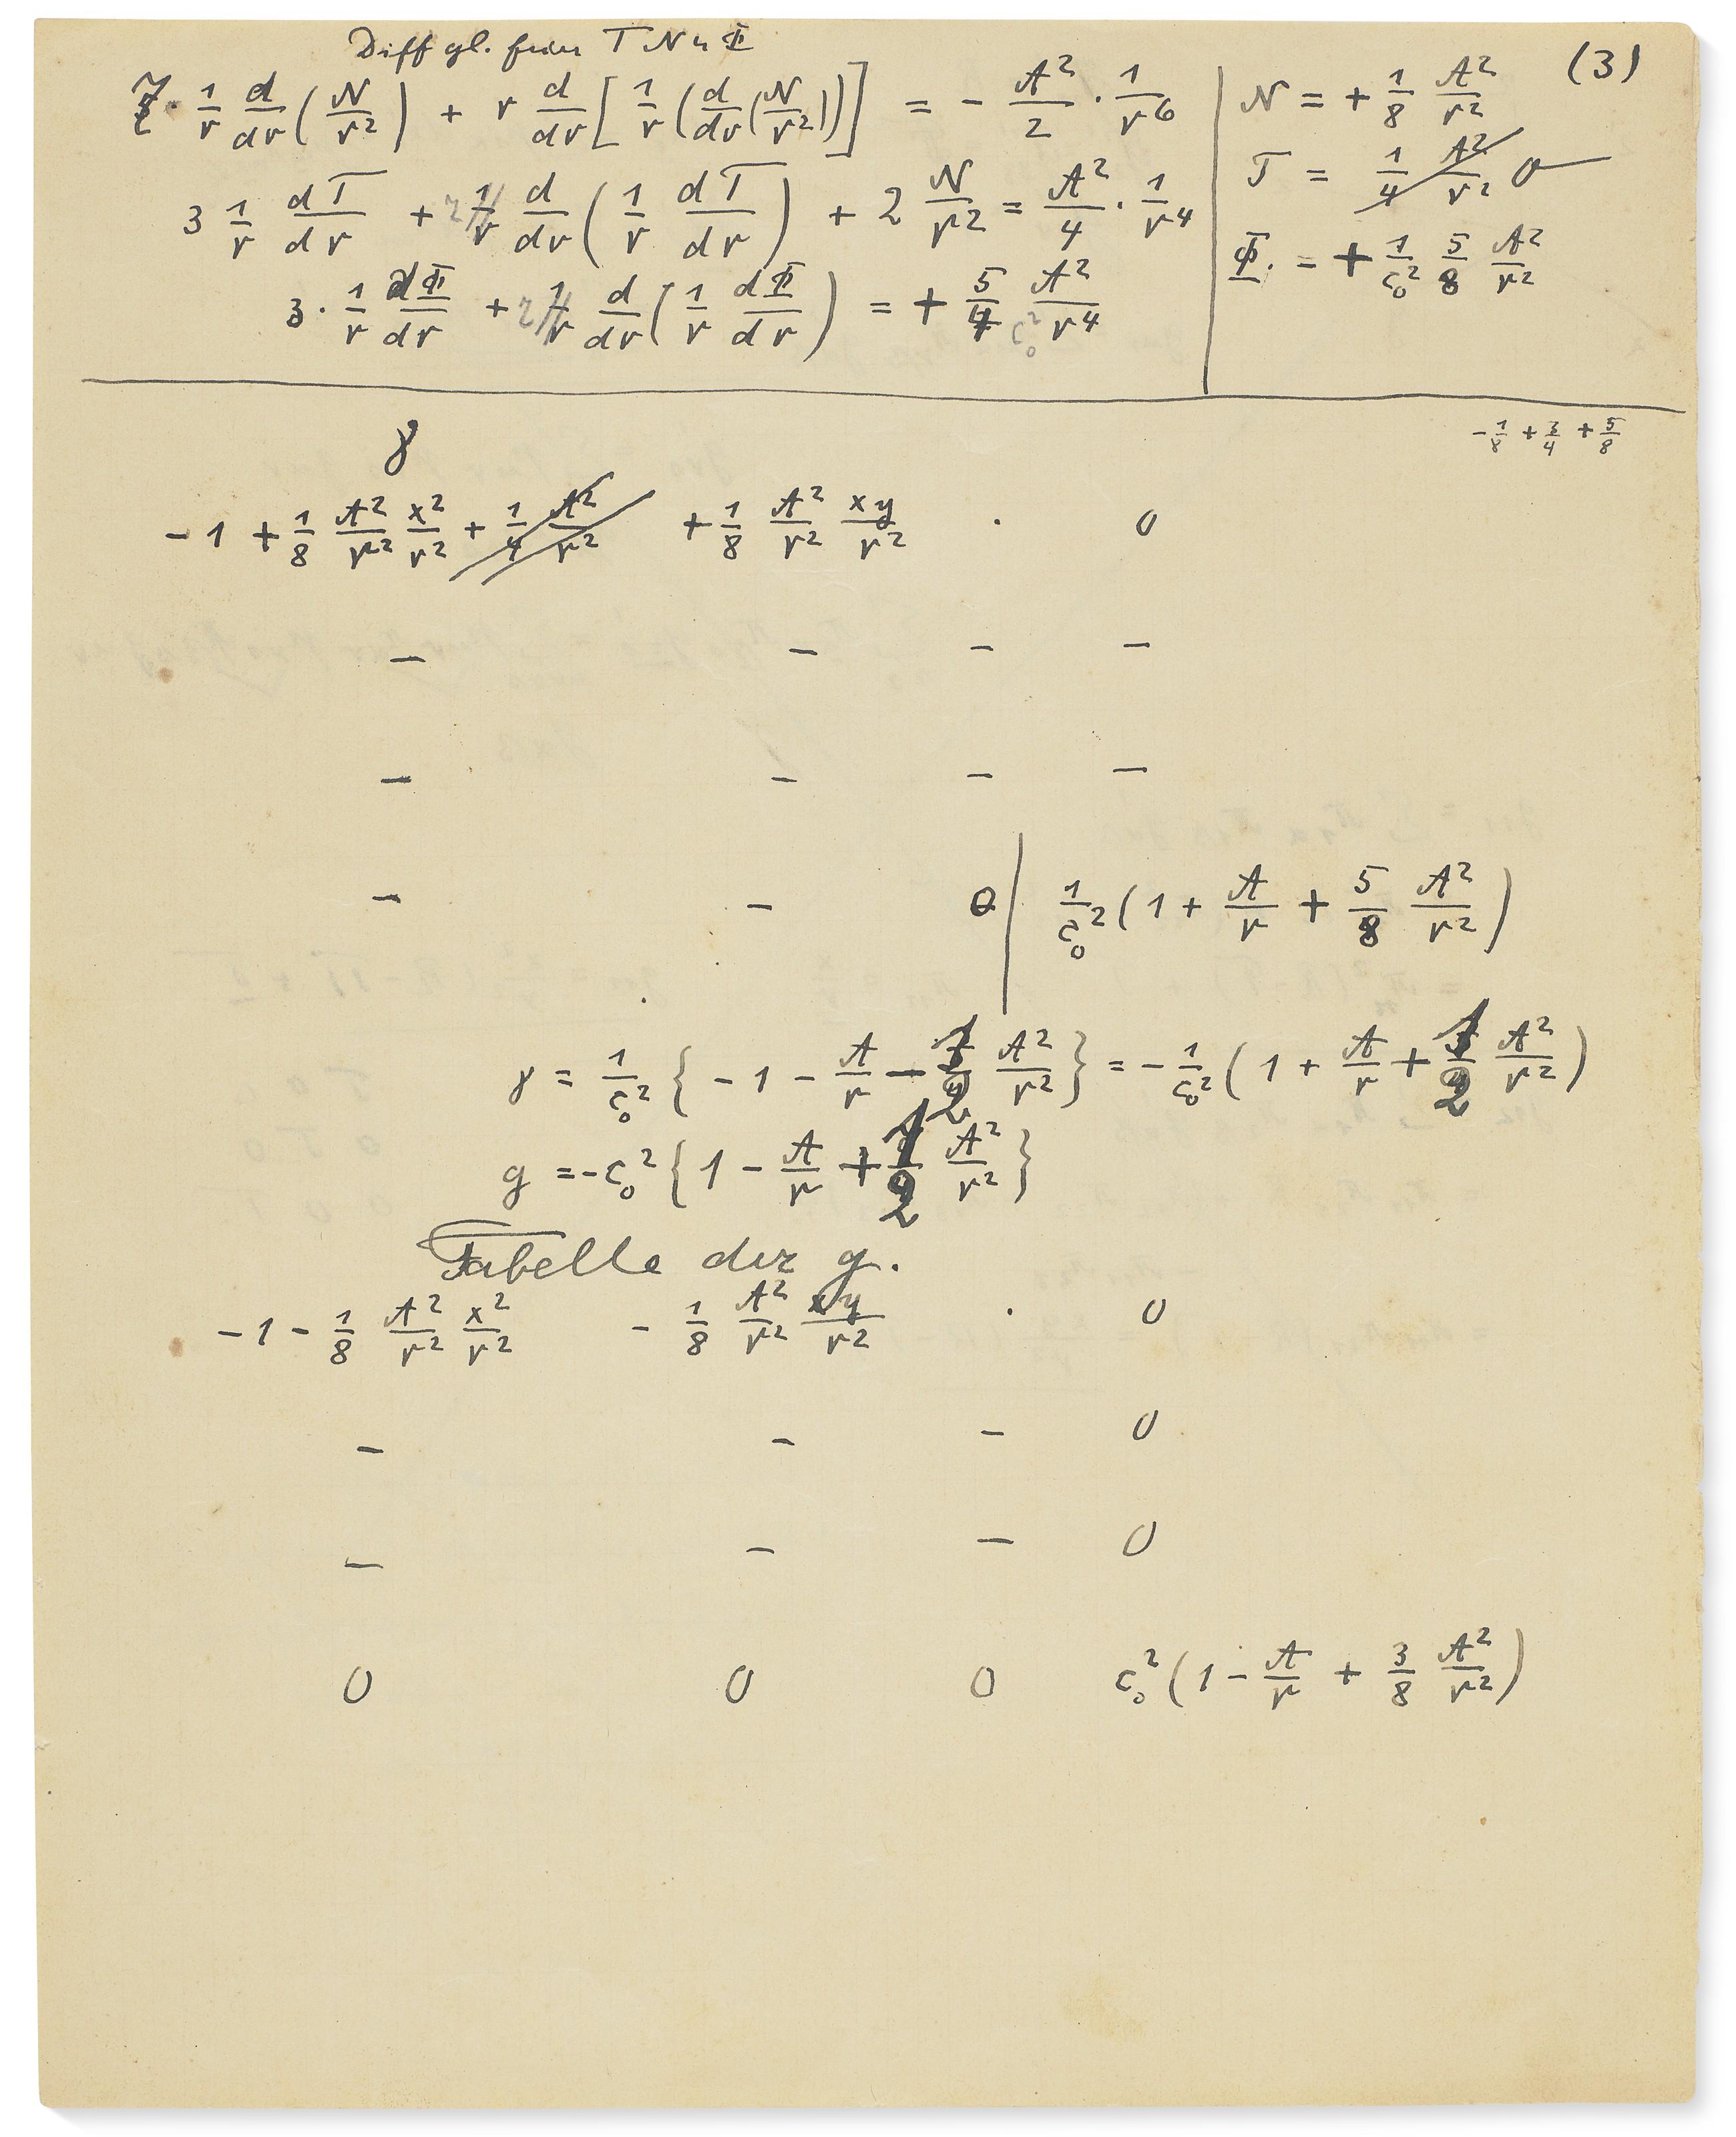 Diffgl. für T N u Φ
(3)
7 · 1/r d/dr (N/r²) + r d/dr [1/r (d/dr (N/r²))] = - A²/2 · 1/r⁶
N = + 1/8 A²/r²
3 1/r dT/dr + r d/dr (1/r dT/dr) + 2 N/r² = A²/4 · 1/r⁴
T = 1/4 A²/r² 0
3 · 1/r dΦ/dr + r d/dr (1/r dΦ/dr) = + 5/4 A²/c₀² r⁴
Φ = + 1/c₀² 5/8 A²/r²
- 1/8 + 3/4 + 5/8
γ
- 1 + 1/8 A²/r² x²/r² + 1/4 A²/r² + 1/8 A²/r² xy/r² · 0
– – – –
– – – –
– – 0 | 1/c₀² (1 + A/r + 5/8 A²/r²)
γ = 1/c₀² { - 1 - A/r - 1/2 A²/r² } = - 1/c₀² (1 + A/r + 1/2 A²/r²)
g = - c₀² { 1 - A/r + 1/2 A²/r² }
Tabelle der g.
- 1 - 1/8 A²/r² x²/r² - 1/8 A²/r² xy/r² · 0
– – – 0
– – – 0
0 0 0 c₀² (1 - A/r + 3/8 A²/r²)